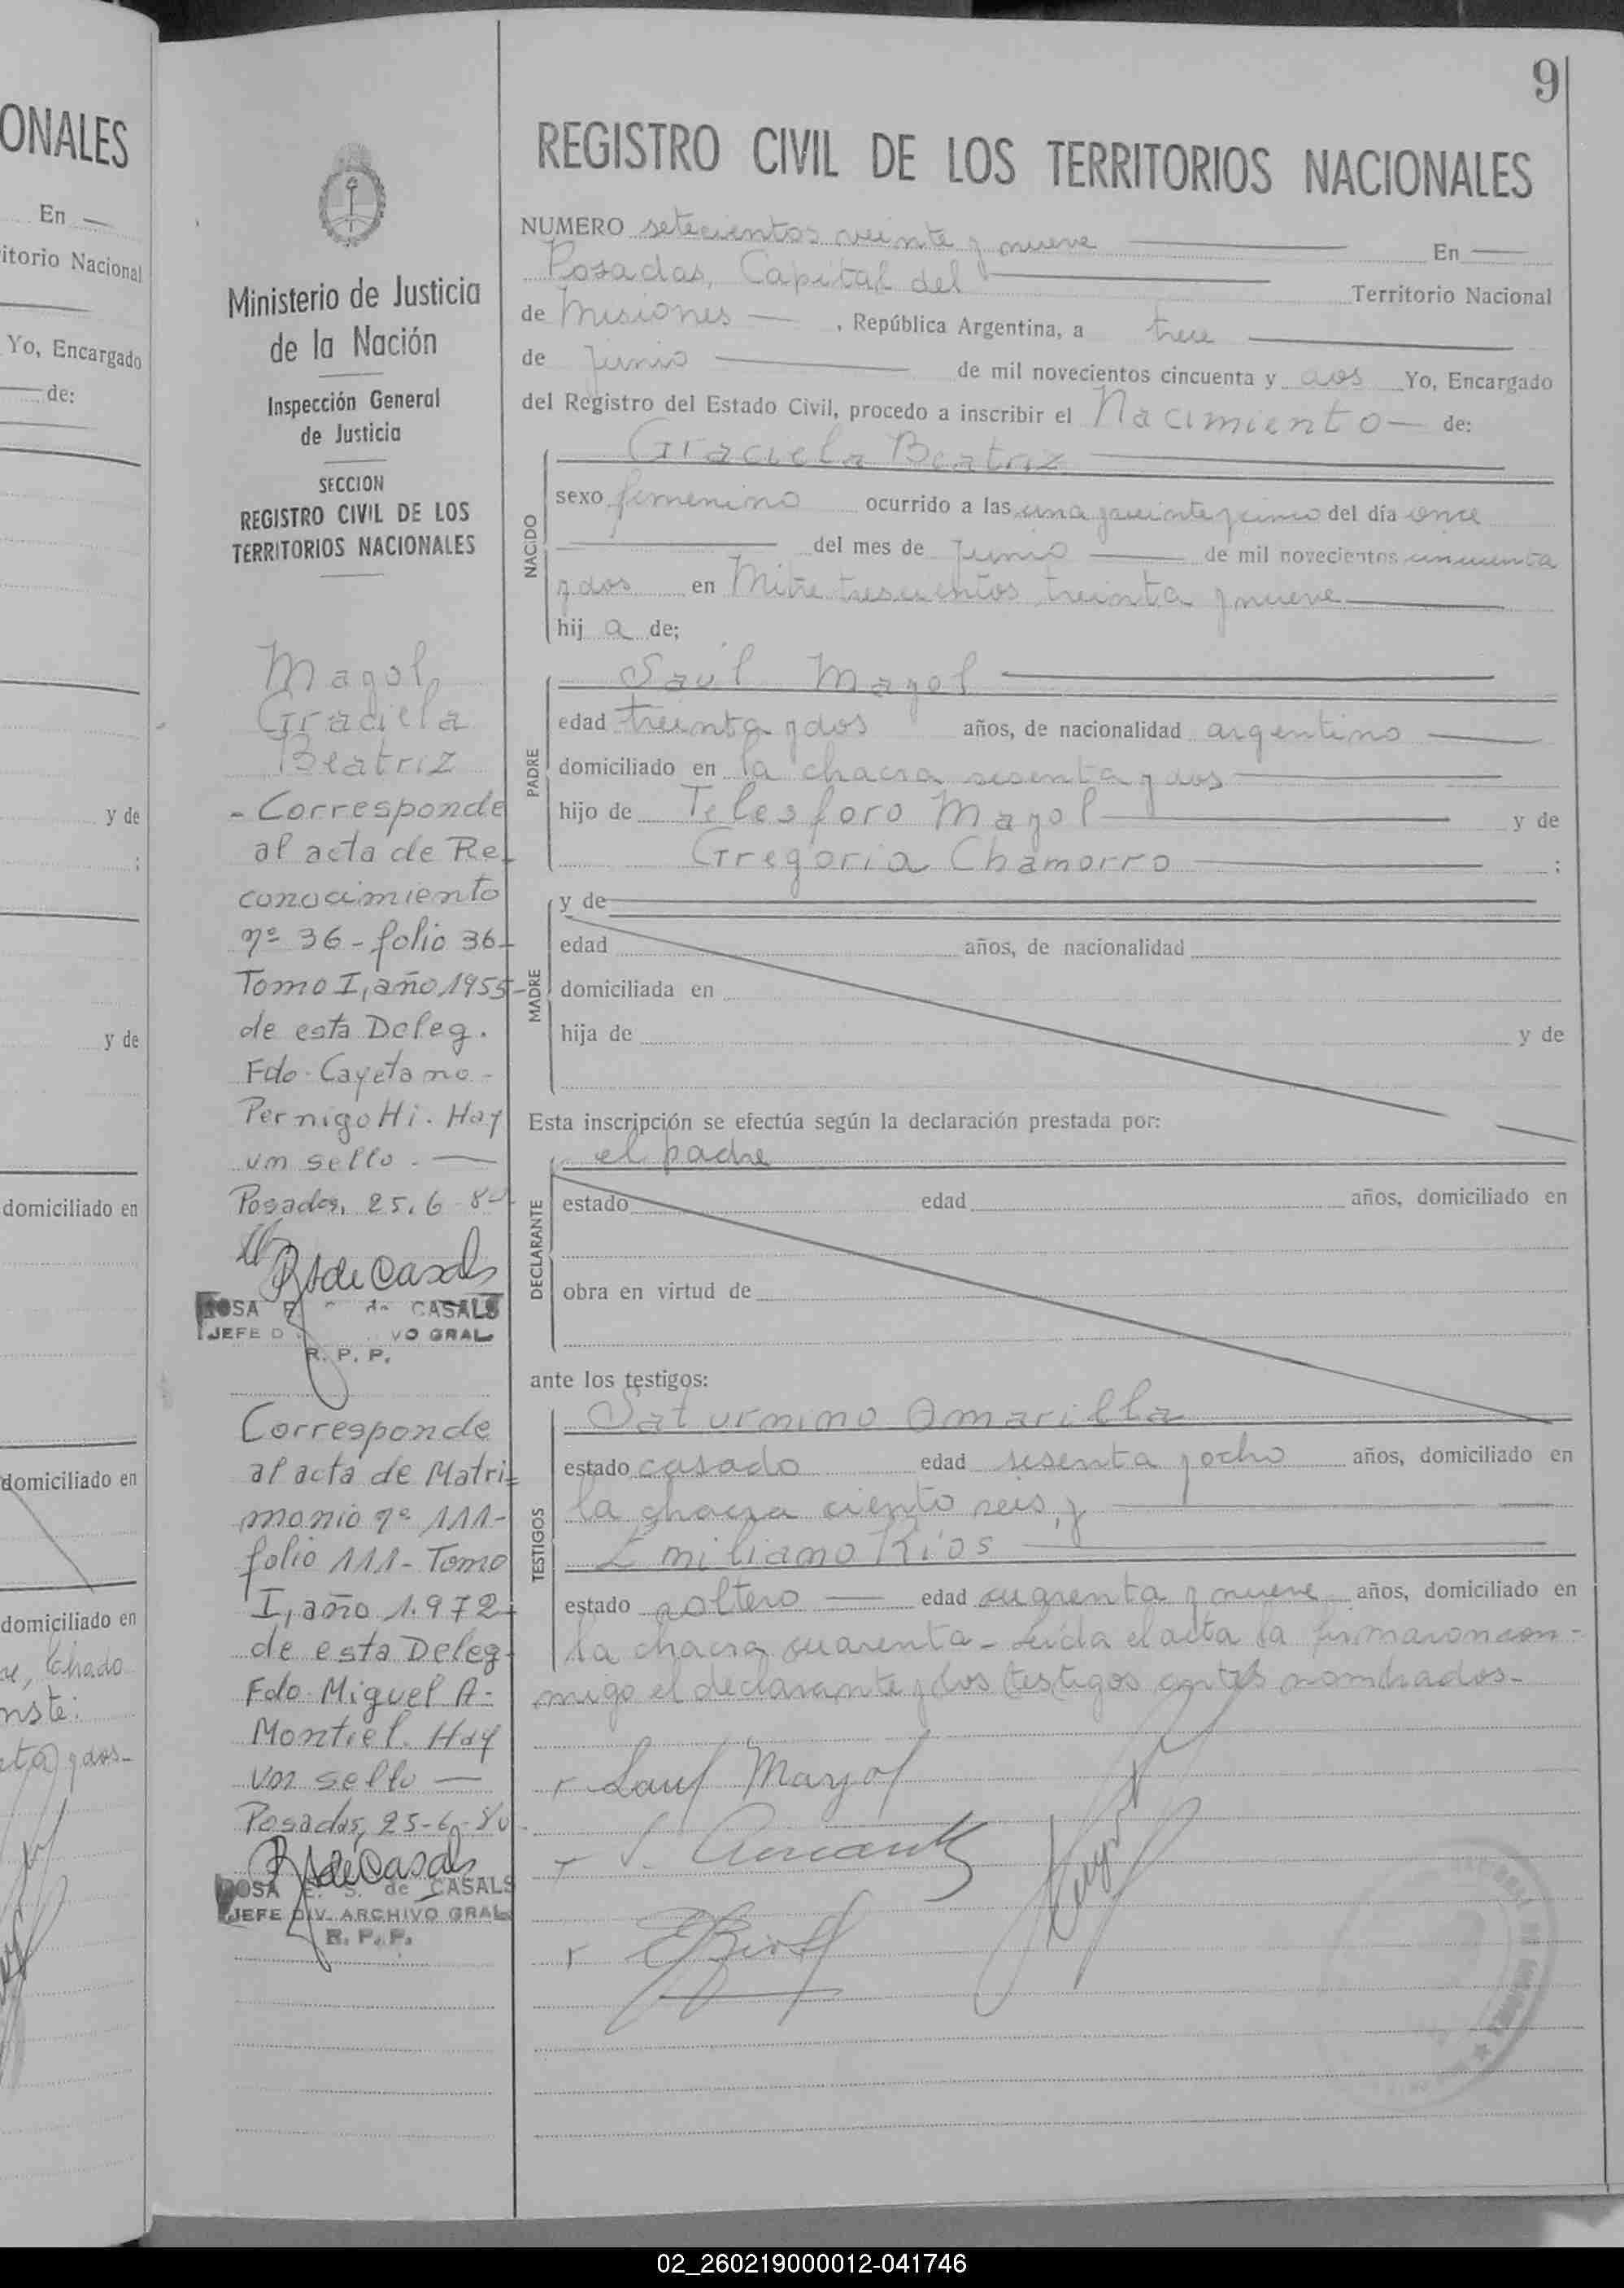 ONALES
En
itorio Nacional
Yo, Encargado
de:
y de
;
y de
domiciliado en
domiciliado en
domiciliado en
nste:
9
Ministerio de Justicia
de la Nación
Inspección General
de Justicia
SECCION
REGISTRO CIVIL DE LOS
TERRITORIOS NACIONALES
Mayol,
Graciela
Beatriz
- Corresponde
al acta de Re-
conocimiento
nº 36 - folio 36-
Tomo I, año 1955-
de esta Deleg.
Fdo. Cayetano
Pernigotti. Hay
un sello.
Posadas, 25.6-80
ROSA E de CASALS
JEFE D VO GRAL.
R. P. P.
Corresponde
al acta de Matri-
monio nº 111-
folio 111- Tomo
I, año 1.972-
de esta Deleg.
Fdo. Miguel A.
Montiel. Hay
un sello
Posadas, 25-6-80
ROSA E. S. de CASALS
JEFE DIV. ARCHIVO GRAL.
R. P. P.
REGISTRO CIVIL DE LOS TERRITORIOS NACIONALES
NUMERO setecientos veinte y nueve En
Posadas, Capital del Territorio Nacional
de Misiones , República Argentina, a trece
de junio de mil novecientos cincuenta y dos Yo, Encargado
del Registro del Estado Civil, procedo a inscribir el Nacimiento de:
Graciela Beatriz
NACIDO
sexo femenino ocurrido a las una y veinte y cinco del día once
del mes de junio de mil novecientos cincuenta
y dos en Mitre trescientos treinta y nueve
hij a de;
Saúl Mayol
PADRE
edad treinta y dos años, de nacionalidad argentino
domiciliado en la chacra sesenta y dos
hijo de Telesforo Mayol y de
Gregoria Chamorro ;
y de
MADRE
edad años, de nacionalidad
domiciliada en
hija de y de
Esta inscripción se efectúa según la declaración prestada por:
el padre
DECLARANTE
estado edad años, domiciliado en
obra en virtud de
ante los testigos:
Saturnino Amarilla
TESTIGOS
estado casado edad sesenta y ocho años, domiciliado en
la chacra ciento seis, y
Emiliano Ríos
estado soltero edad cuarenta y nueve años, domiciliado en
la chacra cuarenta - Leída el acta la firmaron con-
migo el declarante y los testigos antes nombrados-
Saul Mayol
02_260219000012-041746